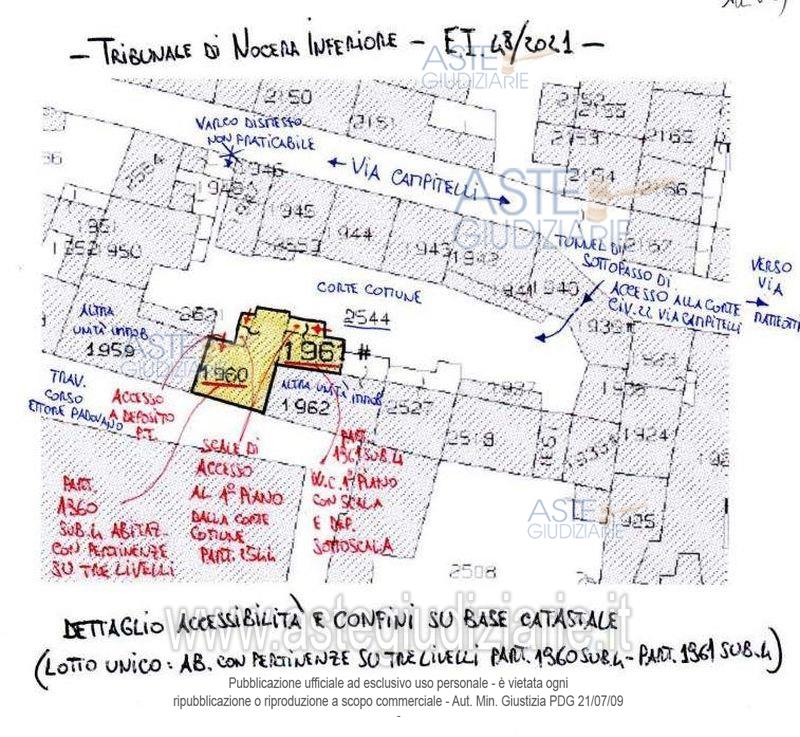 - TRIBUNALE DI NOCERA INFERIORE - E.I. 48/2021 -
ASTE
GIUDIZIARIE
2150
2151
2152
2155
2153
2163
2154
2166
2167
VARCO DISMESSO
NON PRATICABILE
← VIA CAMPITELLI →
ASTE
GIUDIZIARIE
1946
1945
1944
1943
1942
1941
1940
2554
1950
TUNNEL DI
SOTTOPASSO DI
ACCESSO ALLA CORTE
CIV. 22 VIA CAMPITELLI
VERSO
VIA
CORTE COMUNE
2544
ALTRA
UNITÀ IMMOB.
1959
ASTE
GIUDIZIARIE
1960
1961
#
ALTRA UNITÀ IMMOB.
1962
2527
2519
1924
TRAV.
CORSO
ETTORE PADOVANO
ACCESSO
A DEPOSITO
P.T.
PART.
1960
SUB.4 ABITAZ.
CON PERTINENZE
SU TRE LIVELLI
SCALE DI
ACCESSO
AL 1° PIANO
DALLA CORTE
COMUNE
PART. 2544
PART.
1961 SUB.4
W.C. 1° PIANO
CON SCALA
E DEP.
SOTTOSCALA
ASTE
GIUDIZIARIE
2508
DETTAGLIO ACCESSIBILITÀ E CONFINI SU BASE CATASTALE
www.astegiudiziarie.it
(LOTTO UNICO: AB. CON PERTINENZE SU TRE LIVELLI PART. 1960 SUB.4 - PART. 1961 SUB.4)
Pubblicazione ufficiale ad esclusivo uso personale - è vietata ogni
ripubblicazione o riproduzione a scopo commerciale - Aut. Min. Giustizia PDG 21/07/09
-